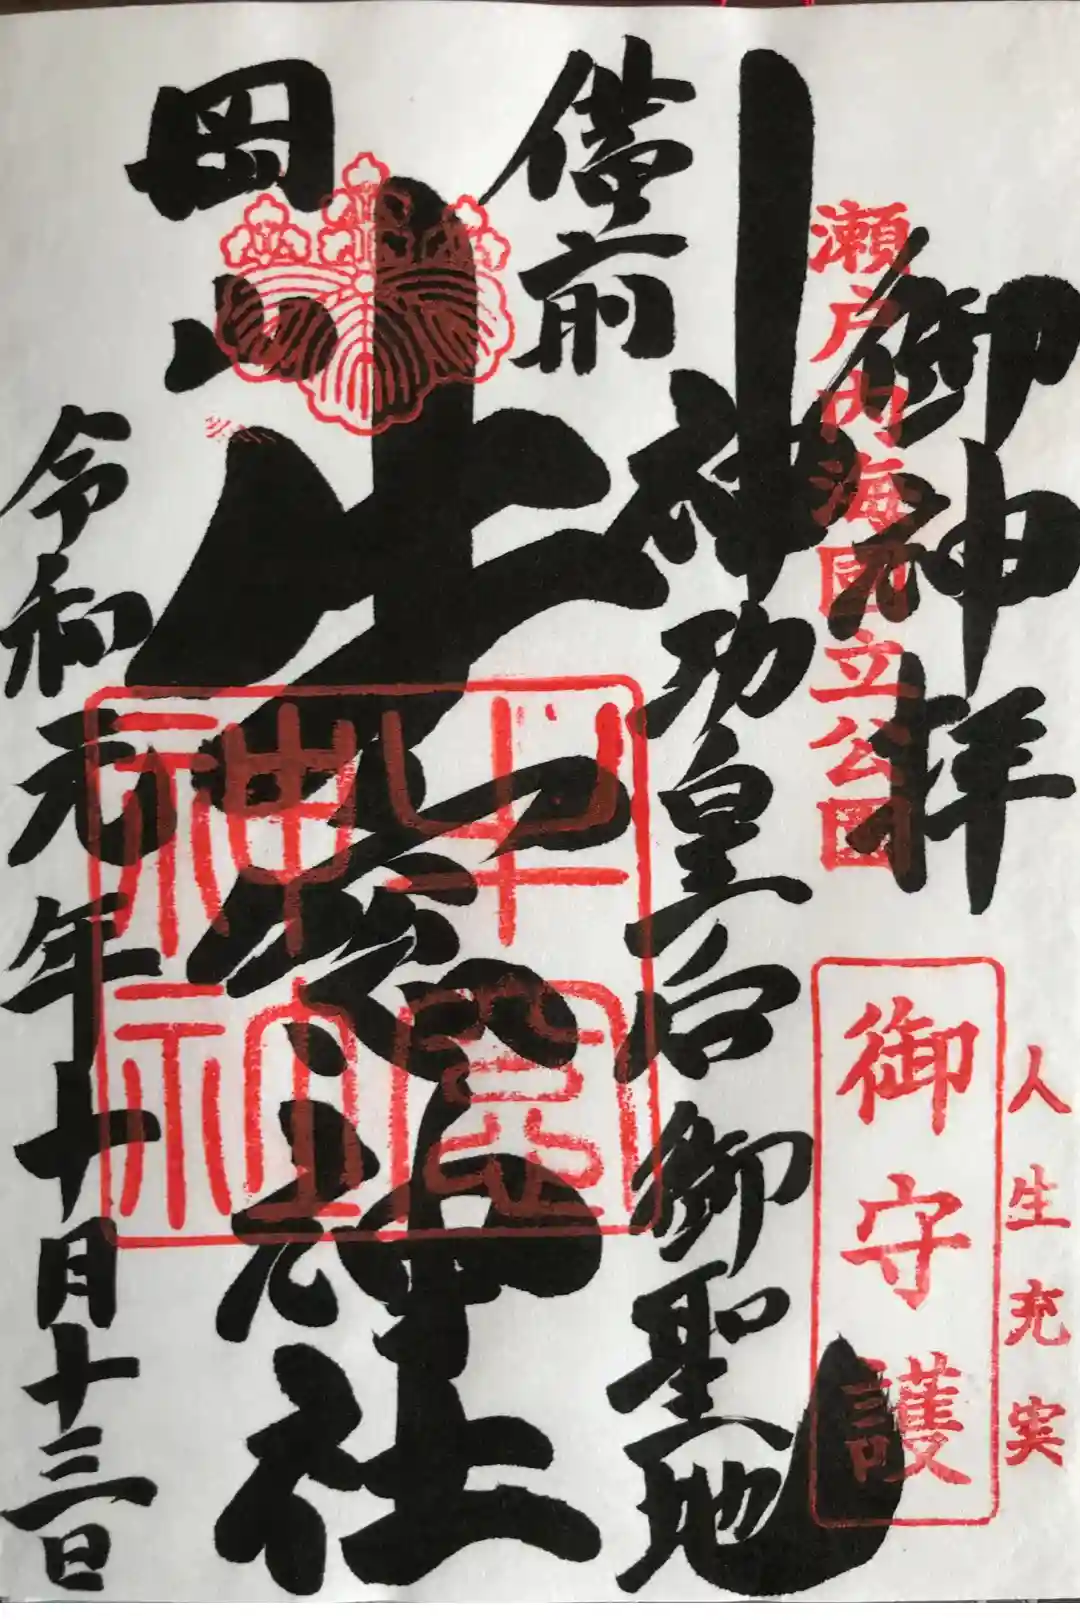 御神拝
瀬戸内海国立公園
御守護
人生充実
神功皇后御聖地
備前
牛窓神社
岡山
令和元年十月十三日
牛窓神社